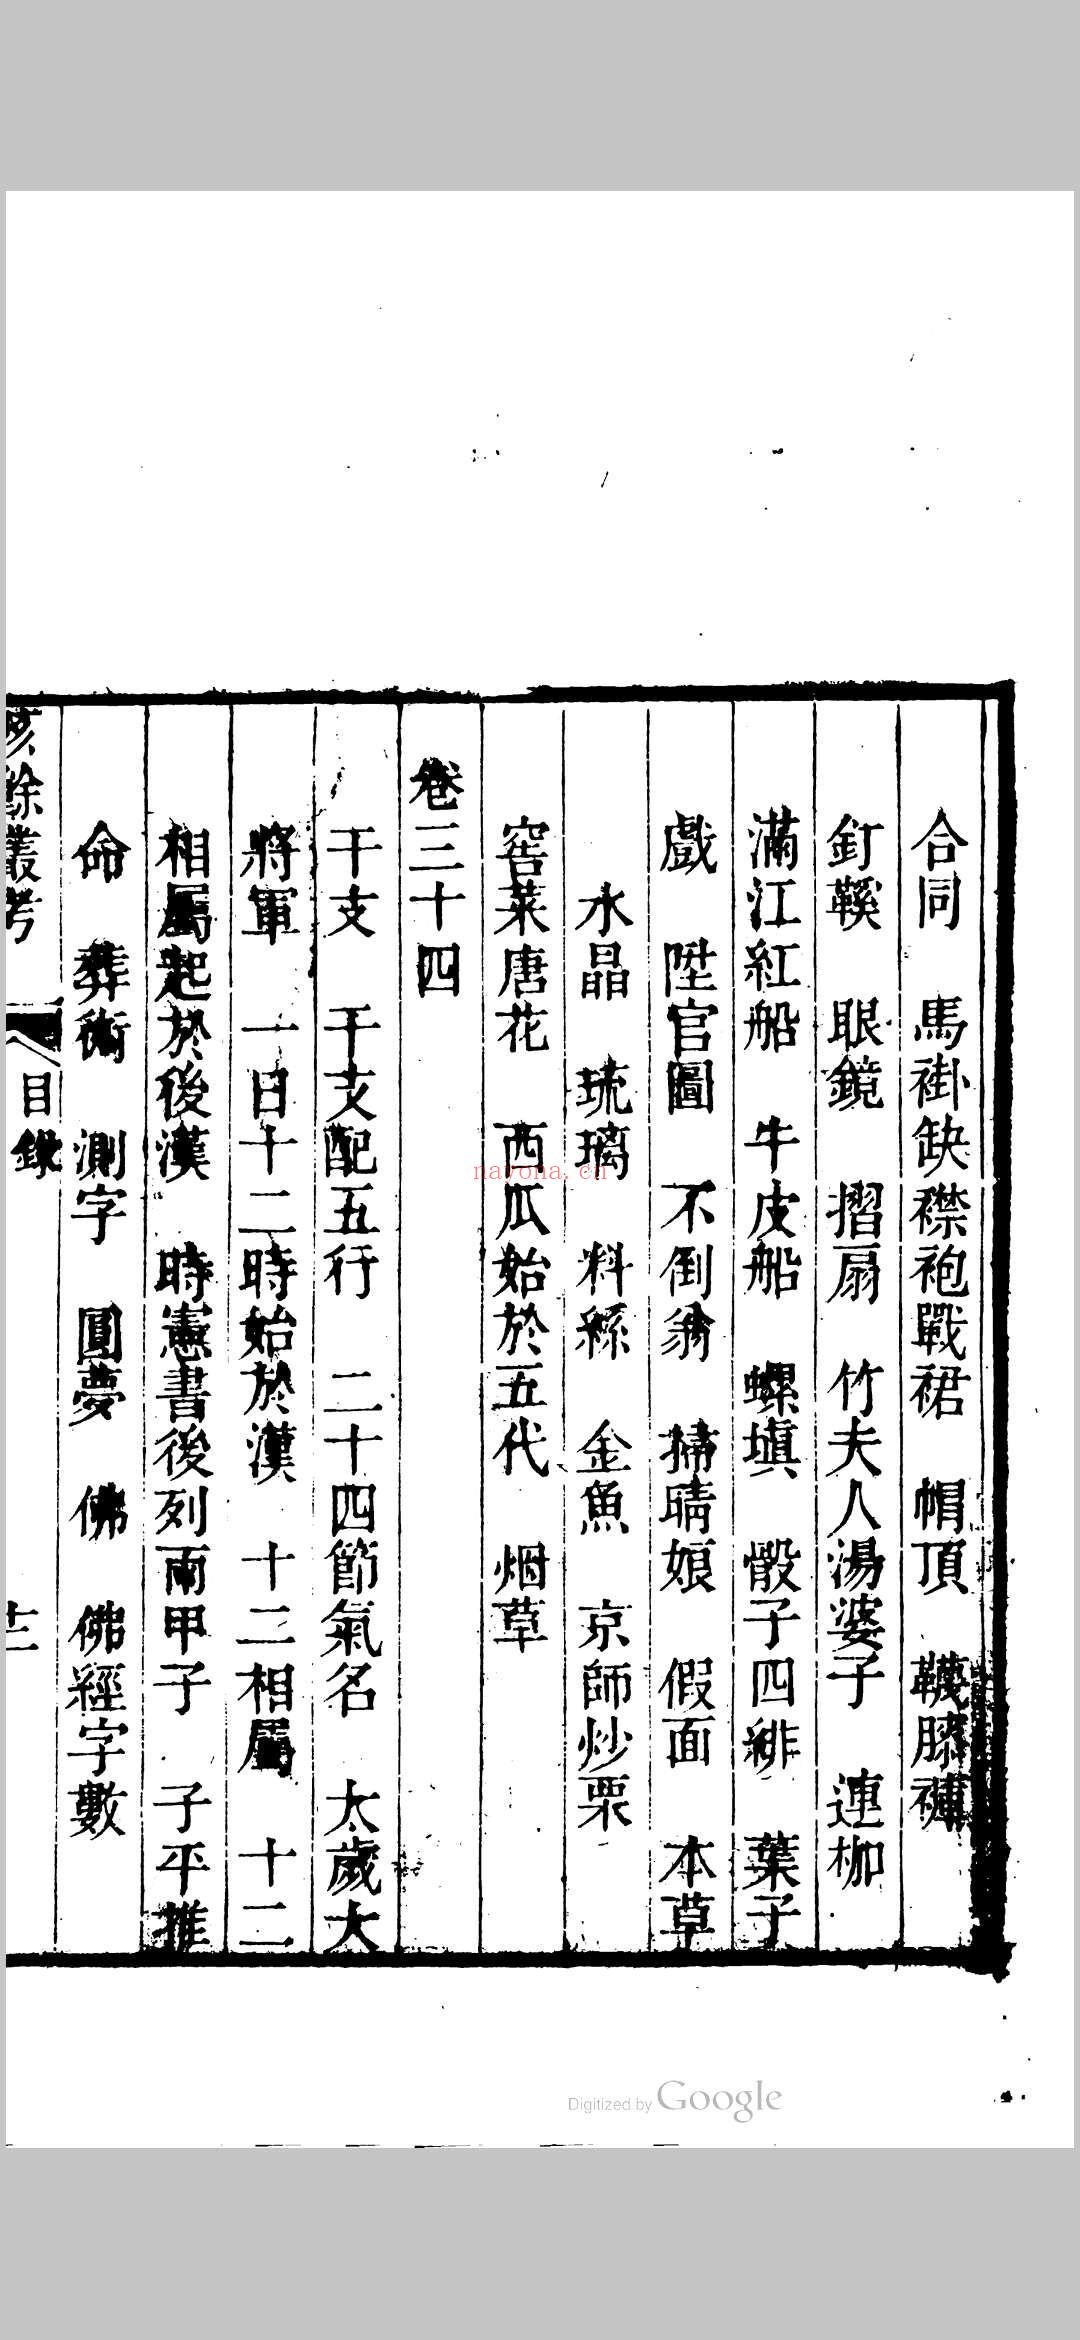 合同 馬褂缺襟袍戰裙 帽頂 韈膝褲
釘鞵 眼鏡 摺扇 竹夫人湯婆子 連枷
滿江紅船 牛皮船 螺塡 骰子四緋 葉子
戲 陞官圖 不倒翁 掃晴娘 假面 本草
水晶 琉璃 料絲 金魚 京師炒栗
窖菜唐花 西瓜始於五代 烟草
卷三十四
干支 干支配五行 二十四節氣名 太歲大
將軍 一日十二時始於漢 十二相屬 十二
相屬起於後漢 時憲書後列兩甲子 子平推
命 葬術 測字 圓夢 佛 佛經字數
陔餘叢考 目錄 十二
nayona.cn
Digitized by Google